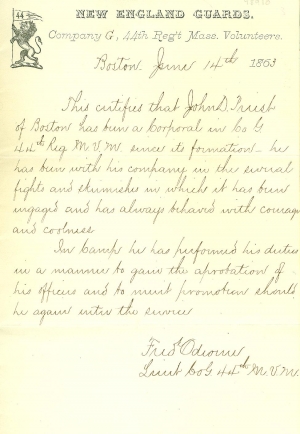 44
NEW ENGLAND GUARDS.
Company G, 44th Reg't Mass. Volunteers.
Boston June 14th 1863
This certifies that John D. Priest
of Boston has been a Corporal in Co G
44th Reg M.V.M. since its formation – he
has been with his company in the several
fights and skirmishes in which it has been
engaged and has always behaved with courage
and coolness
In Camp he has performed his duties
in a manner to gain the aprobation of
his officers and to merit promotion should
he again enter the service
Fredk Odiorne
Lieut Co G 44th M.V.M.